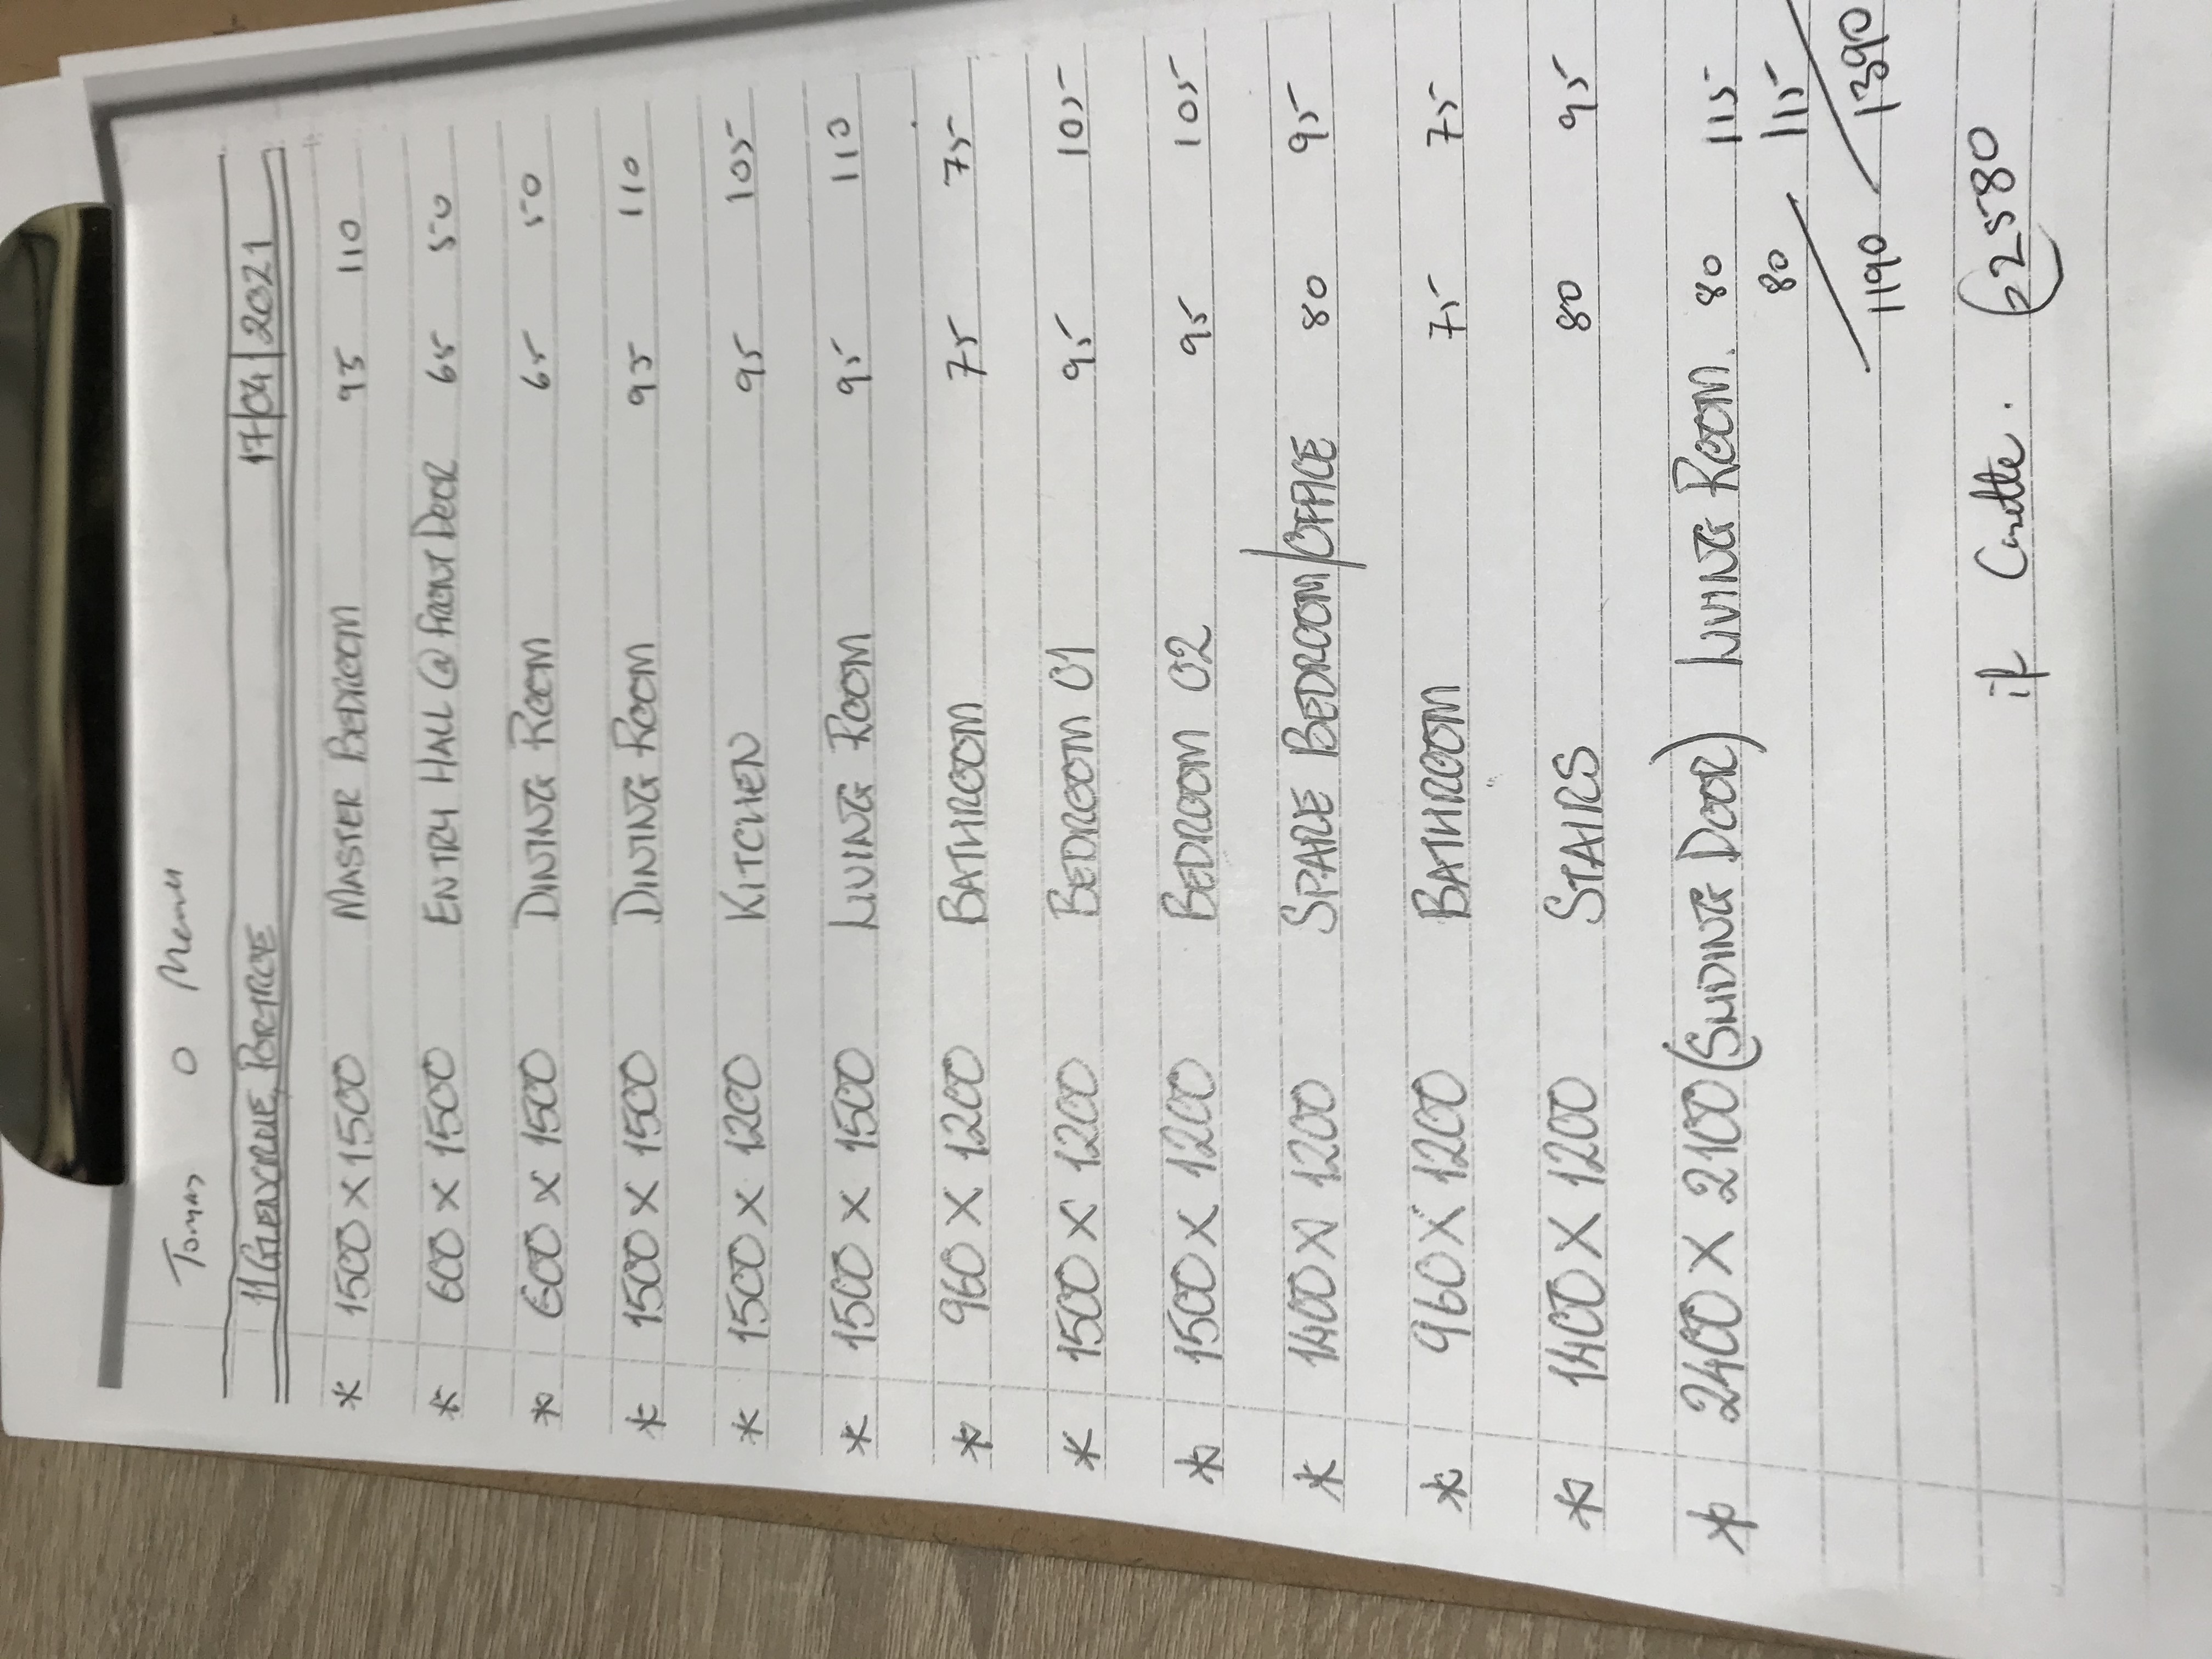 Tomas O
11 GLENVRUE, PORTROE 17/04/2021
* 1500 x 1500 MASTER BEDROOM 95 110
* 600 x 1500 ENTRY HALL @ FRONT DOOR 65 50
* 600 x 1500 DINING ROOM 65 50
* 1500 x 1500 DINING ROOM 95 110
* 1500 x 1200 KITCHEN 95 105
* 1500 x 1500 LIVING ROOM 95 110
* 960 x 1200 BATHROOM 75 75
* 1500 x 1200 BEDROOM 01 95 105
* 1500 x 1200 BEDROOM 02 95 105
* 1400 x 1200 SPARE BEDROOM/OFFICE 80 95
* 960 x 1200 BATHROOM 75 75
* 1400 x 1200 STAIRS 80 95
* 2400 x 2100 (SLIDING DOOR) LIVING ROOM. 80 115
80 115
1190 1390
if 2580